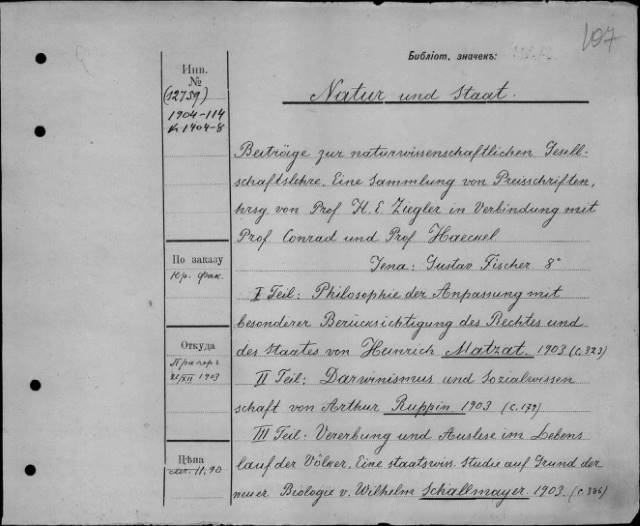 197
Библіот. значекъ:
Инв.
№
(12759)
1904-114
1404-8
Natur und Staat.
Beiträige zur naturwissenschaftlichen Gesell-
schaftslehre. Eine Sammlung von Preisschriften,
hrsg. von Prof H. E Ziegler in Verbindung mit
Prof Conrad und Prof Haeckel
Jena: Gustav Fischer 8°
По заказу
Юр. Фак.
I Teil: Philosophie der Anpassung mit
besonderer Berücksichtigung des Rechtes und
des Staates von Heinrich Matzat. 1903 (с. 323)
Откуда
XII 1903
II Teil: Darwinismus und Sozialwissen
schaft von Arthur Ruppin 1903 (с. 179)
III Teil: Vererbung und Auslese im Lebens
lauf der Völker. Eine staatswis. Studie auf Grund der
neuer Biologie v. Wilhelm Schallmayer. 1903. (с. 386)
Цѣна
11,90